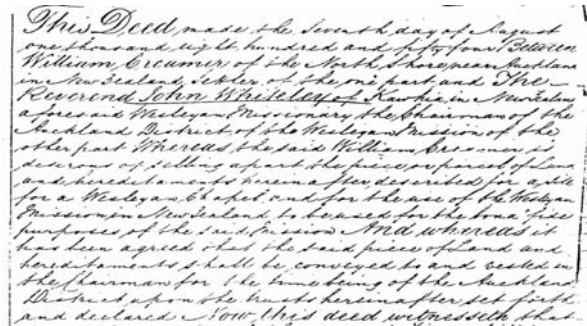 This Deed made the Seventh day of August
one thousand eight hundred and fifty four Between
William Creamer of the North Shore, near Auckland
in New Zealand, Settler of the one part and The
Reverend John Whiteley of Kawhia, in New Zealand
aforesaid Wesleyan Missionary the Chairman of the
Auckland District of the Wesleyan Mission of the
other part Whereas the said William Creamer is
desirous of setting apart the piece or parcel of Land
and hereditaments hereinafter described for a Site
for a Wesleyan Chapel and for the use of the Wesleyan
Mission in New Zealand to be used for the bona fide
purposes of the said Mission And whereas it
has been agreed that the said piece of Land and
hereditaments shall be conveyed to and vested in
the Chairman for the time being of the Auckland
District upon the trusts hereinafter set forth
and declared Now this deed witnesseth that